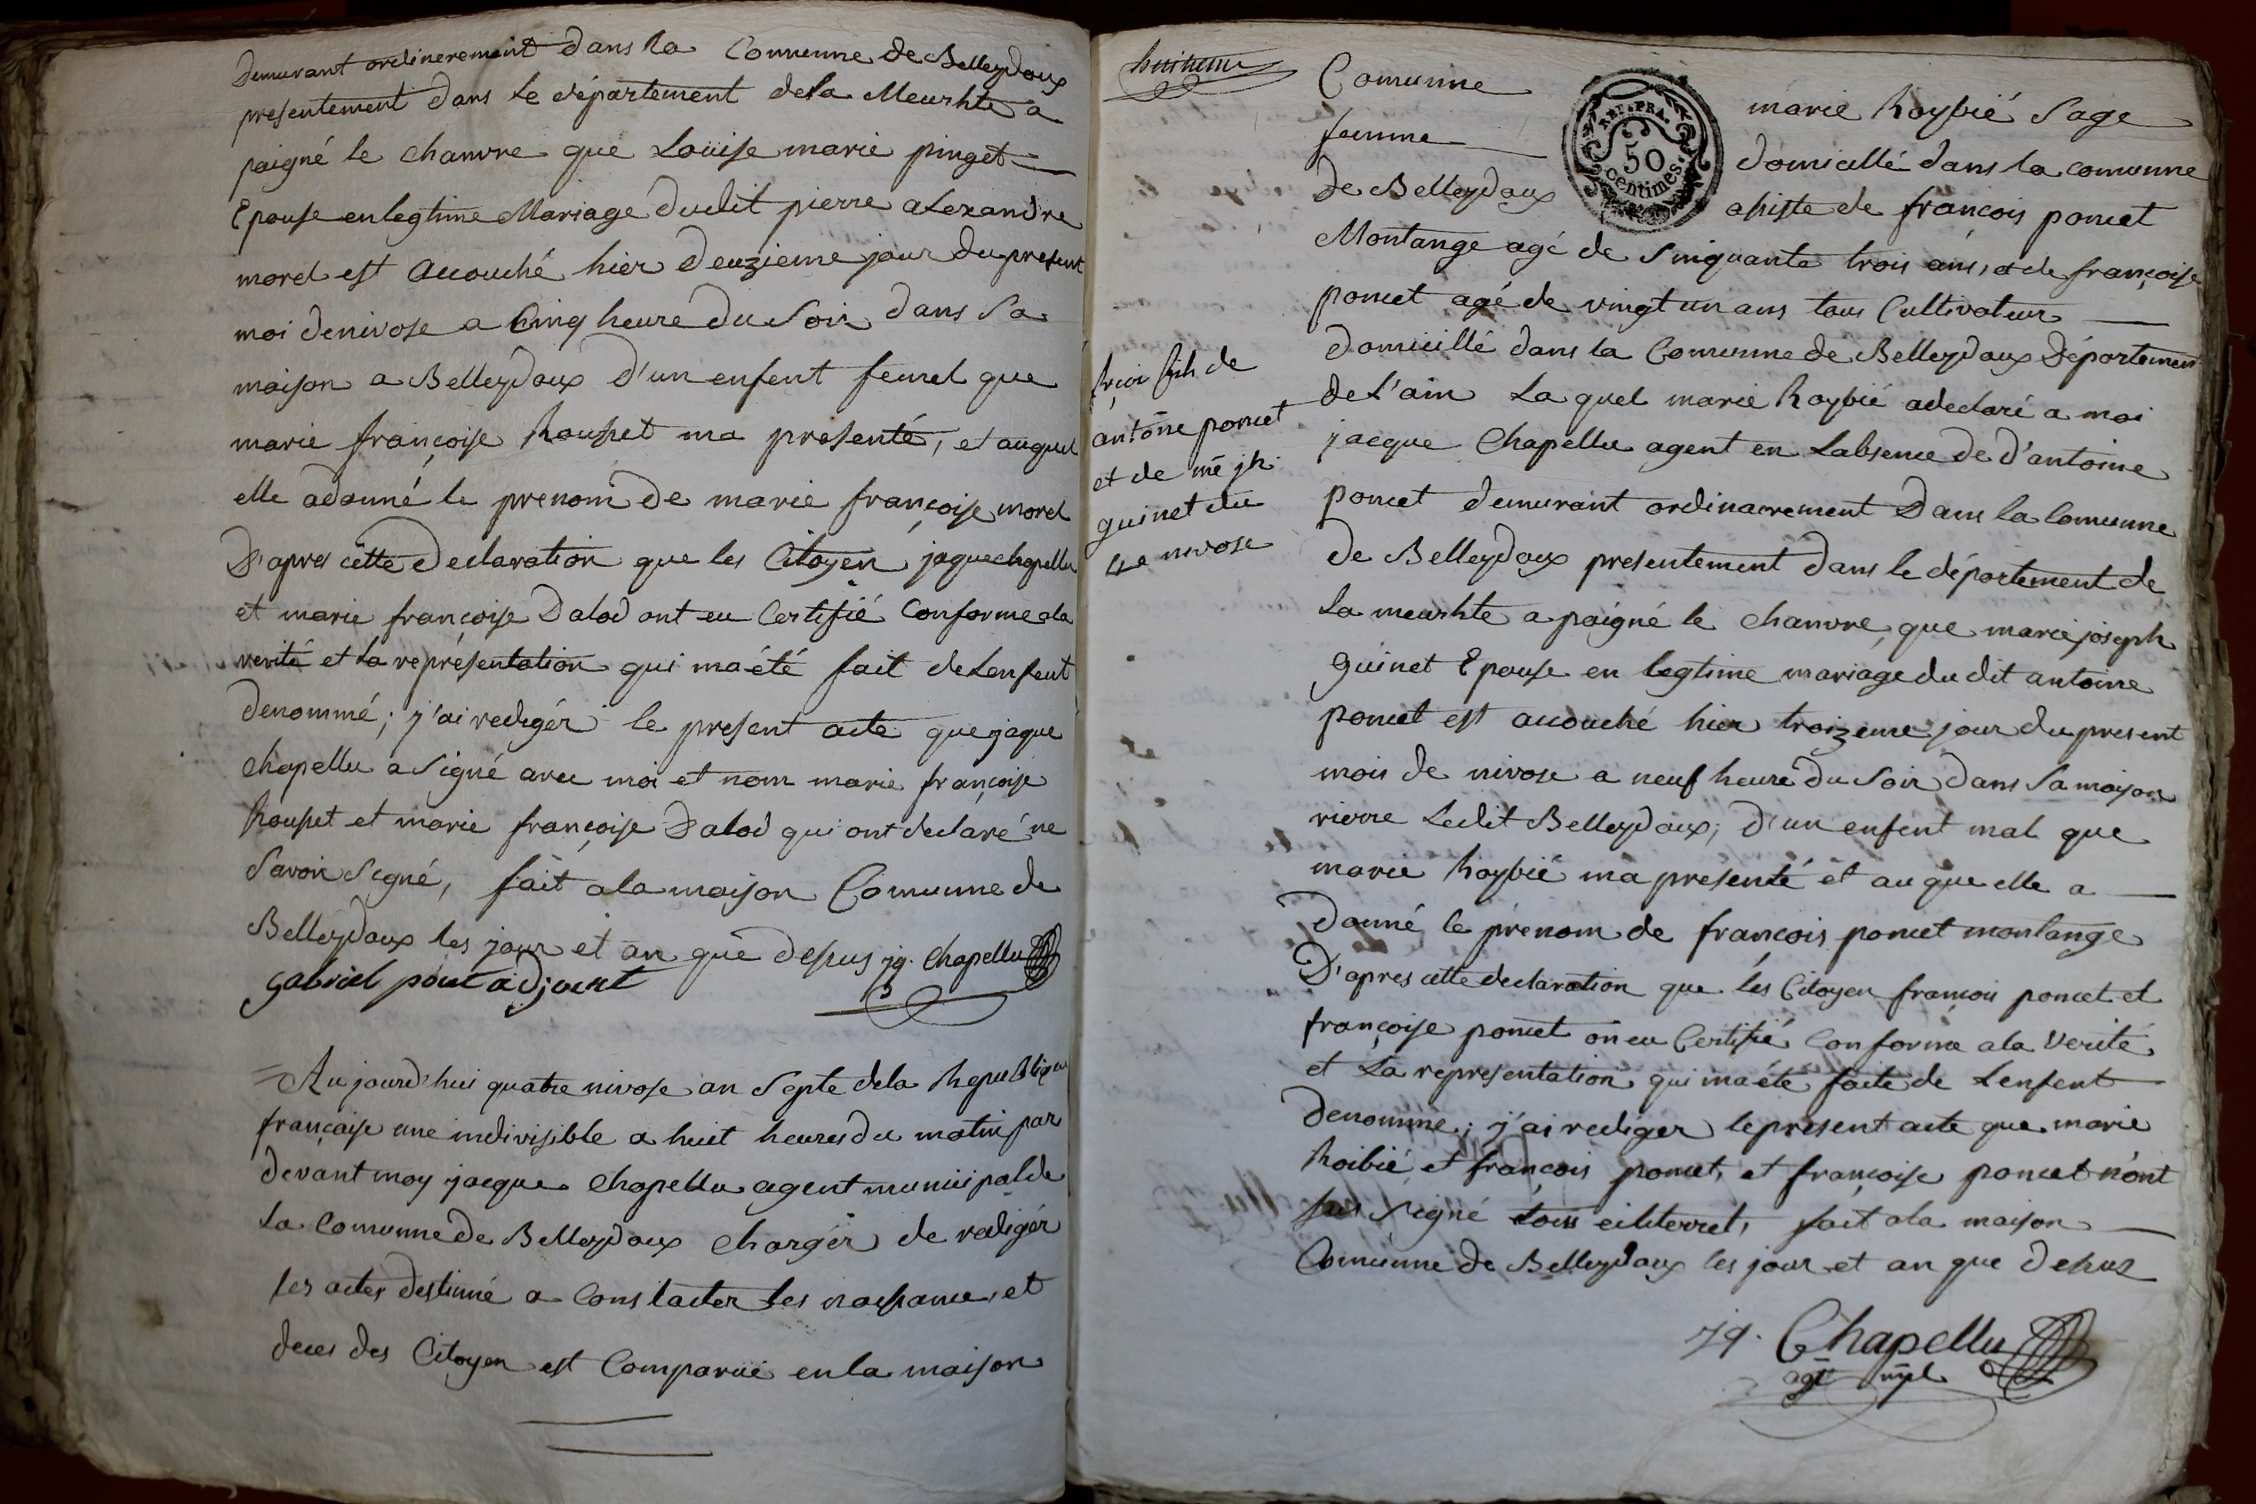 Demurant ordinerement dans la Comunne de Belleydoux
presentement dans le département dela Meurhte a
paigné le chanvre que Loüise marie pinget
Epouse enlegtime Mariage dudit pierre alexandre
morel est acouché hier deuzieme jour du present
moi denivose a Cinq heure du Soir dans Sa
maison a Belleydoux d'un enfent femel que
marie françoise Rousset ma presenté, et auquel
elle adonné le prenom de marie françoise morel
D'apres cette declaration que les Citoyen jaque chapellu
et marie françoise Dalod ont eu Certifié Conforme ala
verité et la représentation qui ma été fait de Lenfent
denommé; j'ai redigér le present acte que jaque
chapellu a Signé avec moi et nom marie françoise
Rousset et marie françoise Dalod qui ont declaré ne
Savoir Signé, fait ala maison Comunne de
Belleydoux les jour et an que desus jq. Chapellu
gabriel poncet adjoint
Aujourd'hui quatre nivose an Septe dela Republique
française une indivisible a huit heures du matin par
devant moy jacque Chapellu agent municipal de
La Comunne de Belleydoux Chargér de redigér
les actes destinné a Constacter les naissance, et
deces des Citoyen est Comparüe en la maison
huitieme
Comunne marie Roybié Sage
femme domicillé dans la comunne
de Belleydoux asiste de françois poncet
REP. FRA.
50
Centimes.
Montange agé de Sinquante trois ans, et de françoise
poncet agé de vingt un ans tous Cultivateur
domicillé dans la Comunne de Belleydoux Département
de L'ain La quel marie Roybié adeclaré a moi
jacque Chapellu agent en Labsence de d'antoine
poncet demurant ordinairement Dans la Comunne
de Belleydoux presentement dans le département de
La meurhte a paigné le chanvre que marie joseph
guinet Epouse en legtime mariage du dit antoine
poncet est acouché hier troizeme jour du present
mois de nivose a neuf heure du Soir dans Sa maison
rierre Ledit Belleydoux; d'un enfent mal que
marie Roybié ma presenté et au que elle a
donné le prenom de françois poncet montange
D'apres cette declaration que les Citoyen françois poncet et
françoise poncet on eu Certifié Conforme ala Verité
et La representation qui ma été faite de Lenfent
denommé; j'ai rediger le present acte que marie
Roibié et françois poncet, et françoise poncet n'ont
pas Signé fait ala maison
Comunne de Belleydoux les jour et an que desus
jq. Chapellu
agt mpl
fils de
antoine poncet
et de me jh.
guinet du
4e nivose